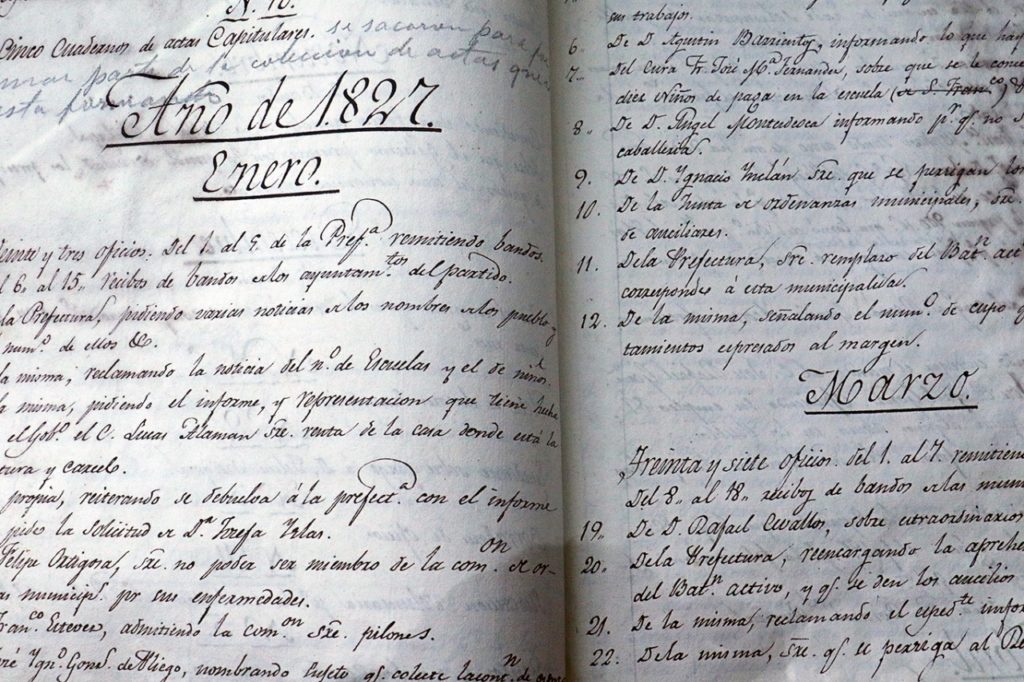 N. 10.
Cinco Cuadernos de actas Capitulares. se sacaron para
mar parte de la coleccion de actas que
esta formando
Año de 1.827.
Enero.
einte y tres oficios. Del 1. al 5. de la Pref.ª remitiendo bandos.
l 6. al 15,, recibos de bandos a los ayuntam.tos del partido.
la Prefectura, pidiendo varias noticias a los nombres a los pueblos y
num.º de ellos &c.
la misma; reclamando la noticia del n.º de Escuelas y el de niños.
la misma, pidiendo el informe, y representacion que tiene hecha
el Gob.º el C. Lucas Alaman sre. renta de la casa donde está la
tura y carcel.
propia, reiterando se debuelva á la prefect.ª con el informe
pide la Solicitud de D.ª Josefa Yslas.
Felipe Ozagora, sre. no poder ser miembro de la com.on de or-
as municip.s pr sus enfermedades.
Fran.co Estevez, admitiendo la com.on sre. pilones.
Ygn.º Gons. de Pliego, nombrando sujeto q.e colecte la cont.n de
sus trabajos.
6,, De D. Agustin Barrientos, informando lo que hay
7,, Del Cura Fr. José M.ª Fernandez, sobre que se le
diez Niños de paga en la escuela (de S. Fran.co)
8,, De D. Angel Montesdeoca informando p.r q.e no
caballeria.
9. De D. Ygnacio Inclán sre. que se persigan los
10. De la Junta de ordenanzas municipales, sre.
de auxiliares.
11. De la Prefectura, sre. remplazo del Bat.n act
corresponde á esta municipalidad.
12. De la misma, señalando el num.º de cupo
tamientos espresados al margen.
Marzo.
Treinta y siete oficios. del 1. al 7. remitiend
Del 8,, al 18,, recibos de bandos a las muni
19,, De D. Rafael Cevallos, sobre extraordinarios
20,, De la Prefectura, reencargando la aprehe
del Bat.n activo, y q.e se den los aucilios
21. De la misma, reclamando el esped.te infor
22. De la misma, sre. q.e se persiga al